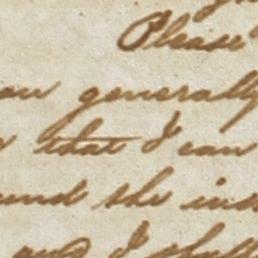 Please
generally
that I can
and the ind
and I shall